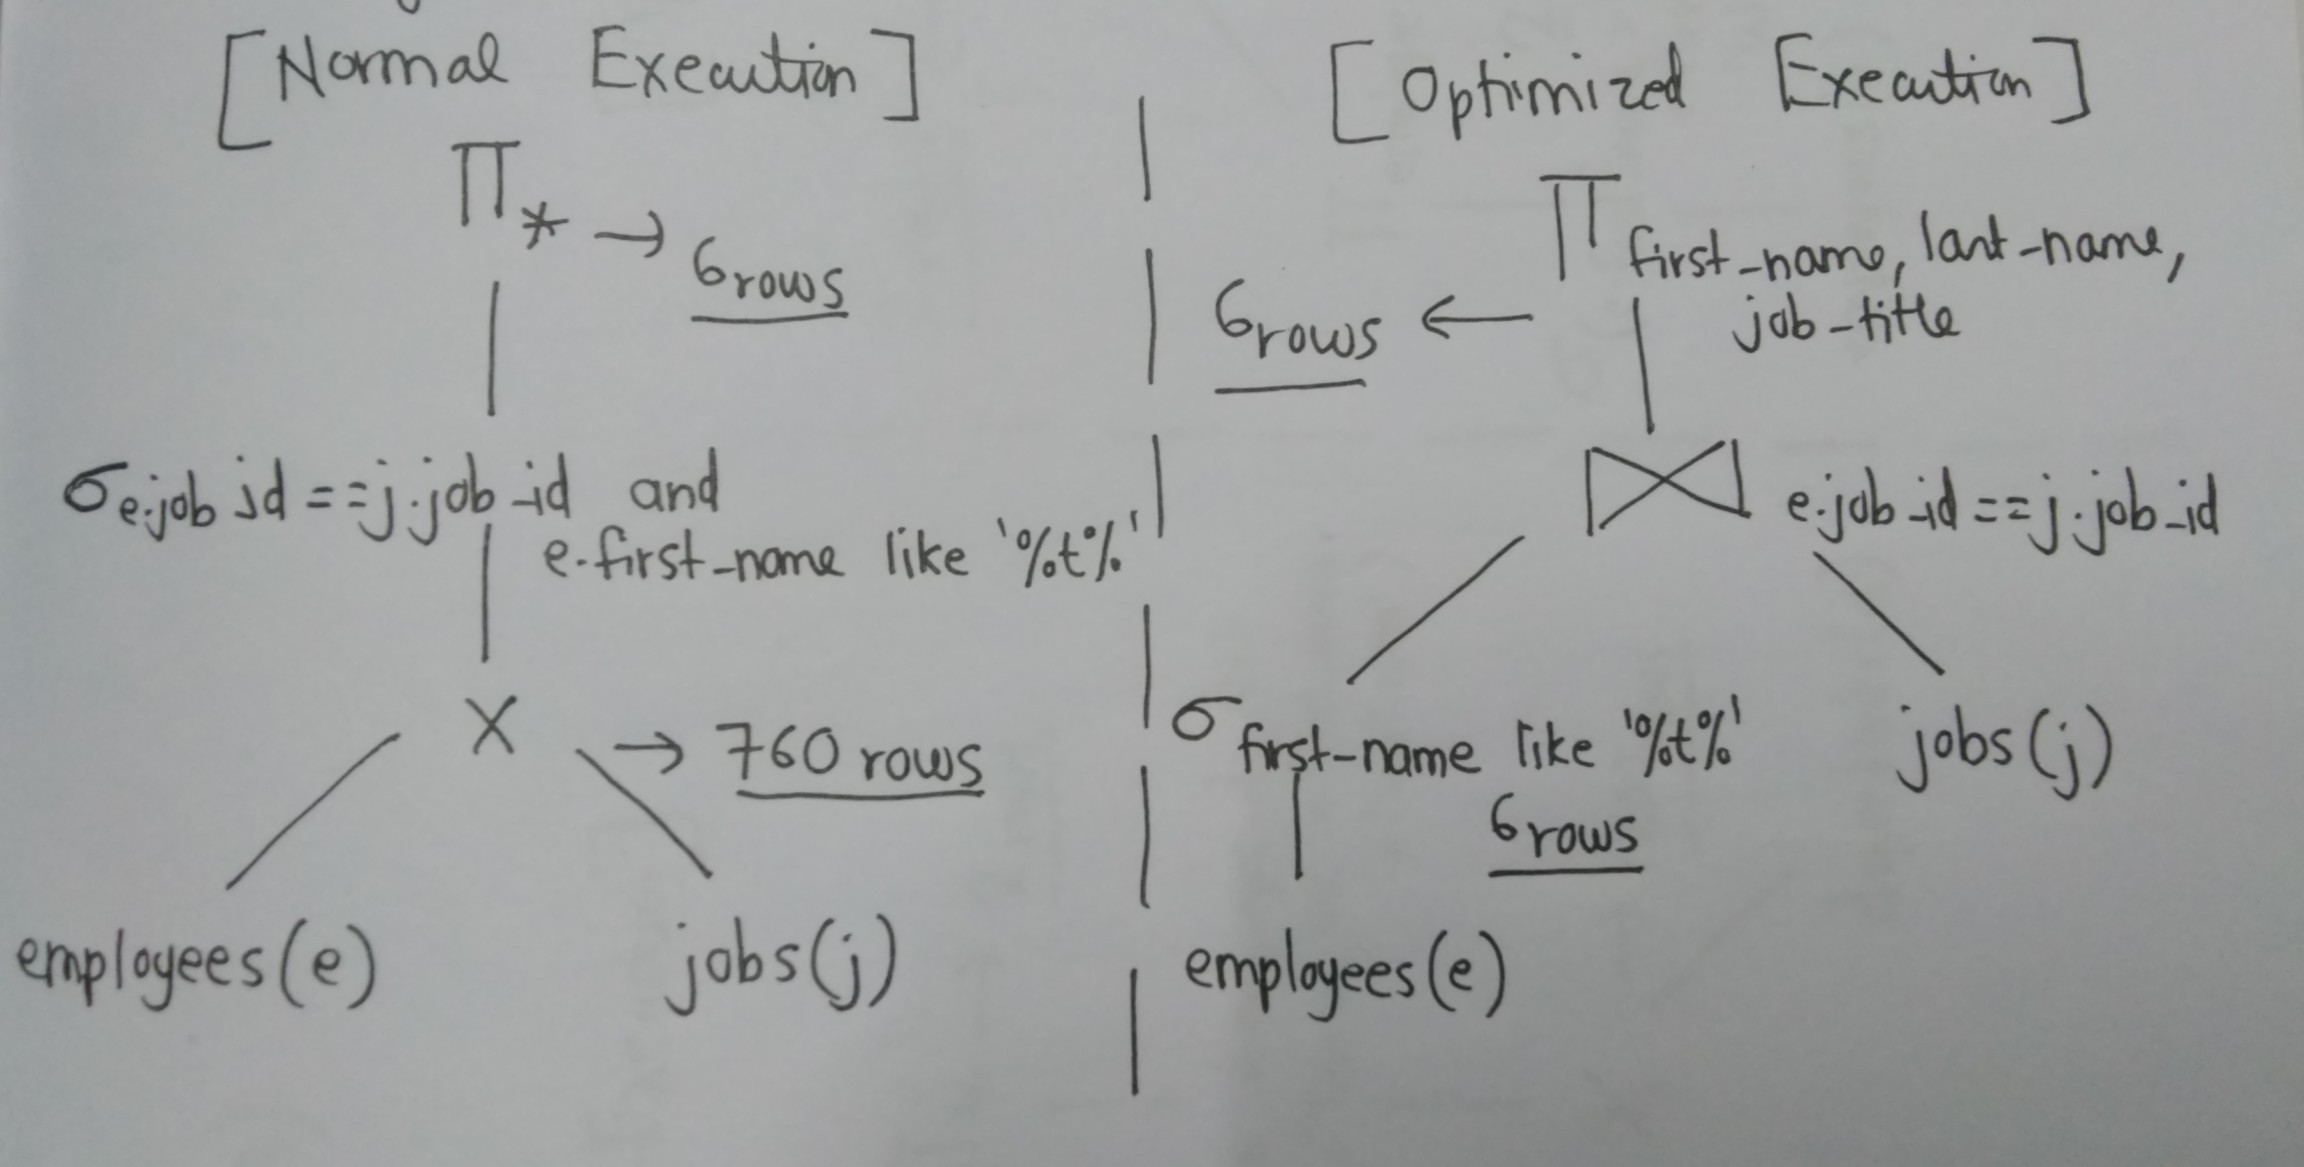 [Normal Execution]
Π * → 6 rows
σ e.job_id == j.job_id and
e.first_name like '%t%'
X → 760 rows
employees(e) jobs(j)
[Optimized Execution]
Π first_name, last_name,
job_title
6 rows ←
⋈ e.job_id == j.job_id
σ first_name like '%t%' jobs(j)
6 rows
employees(e)